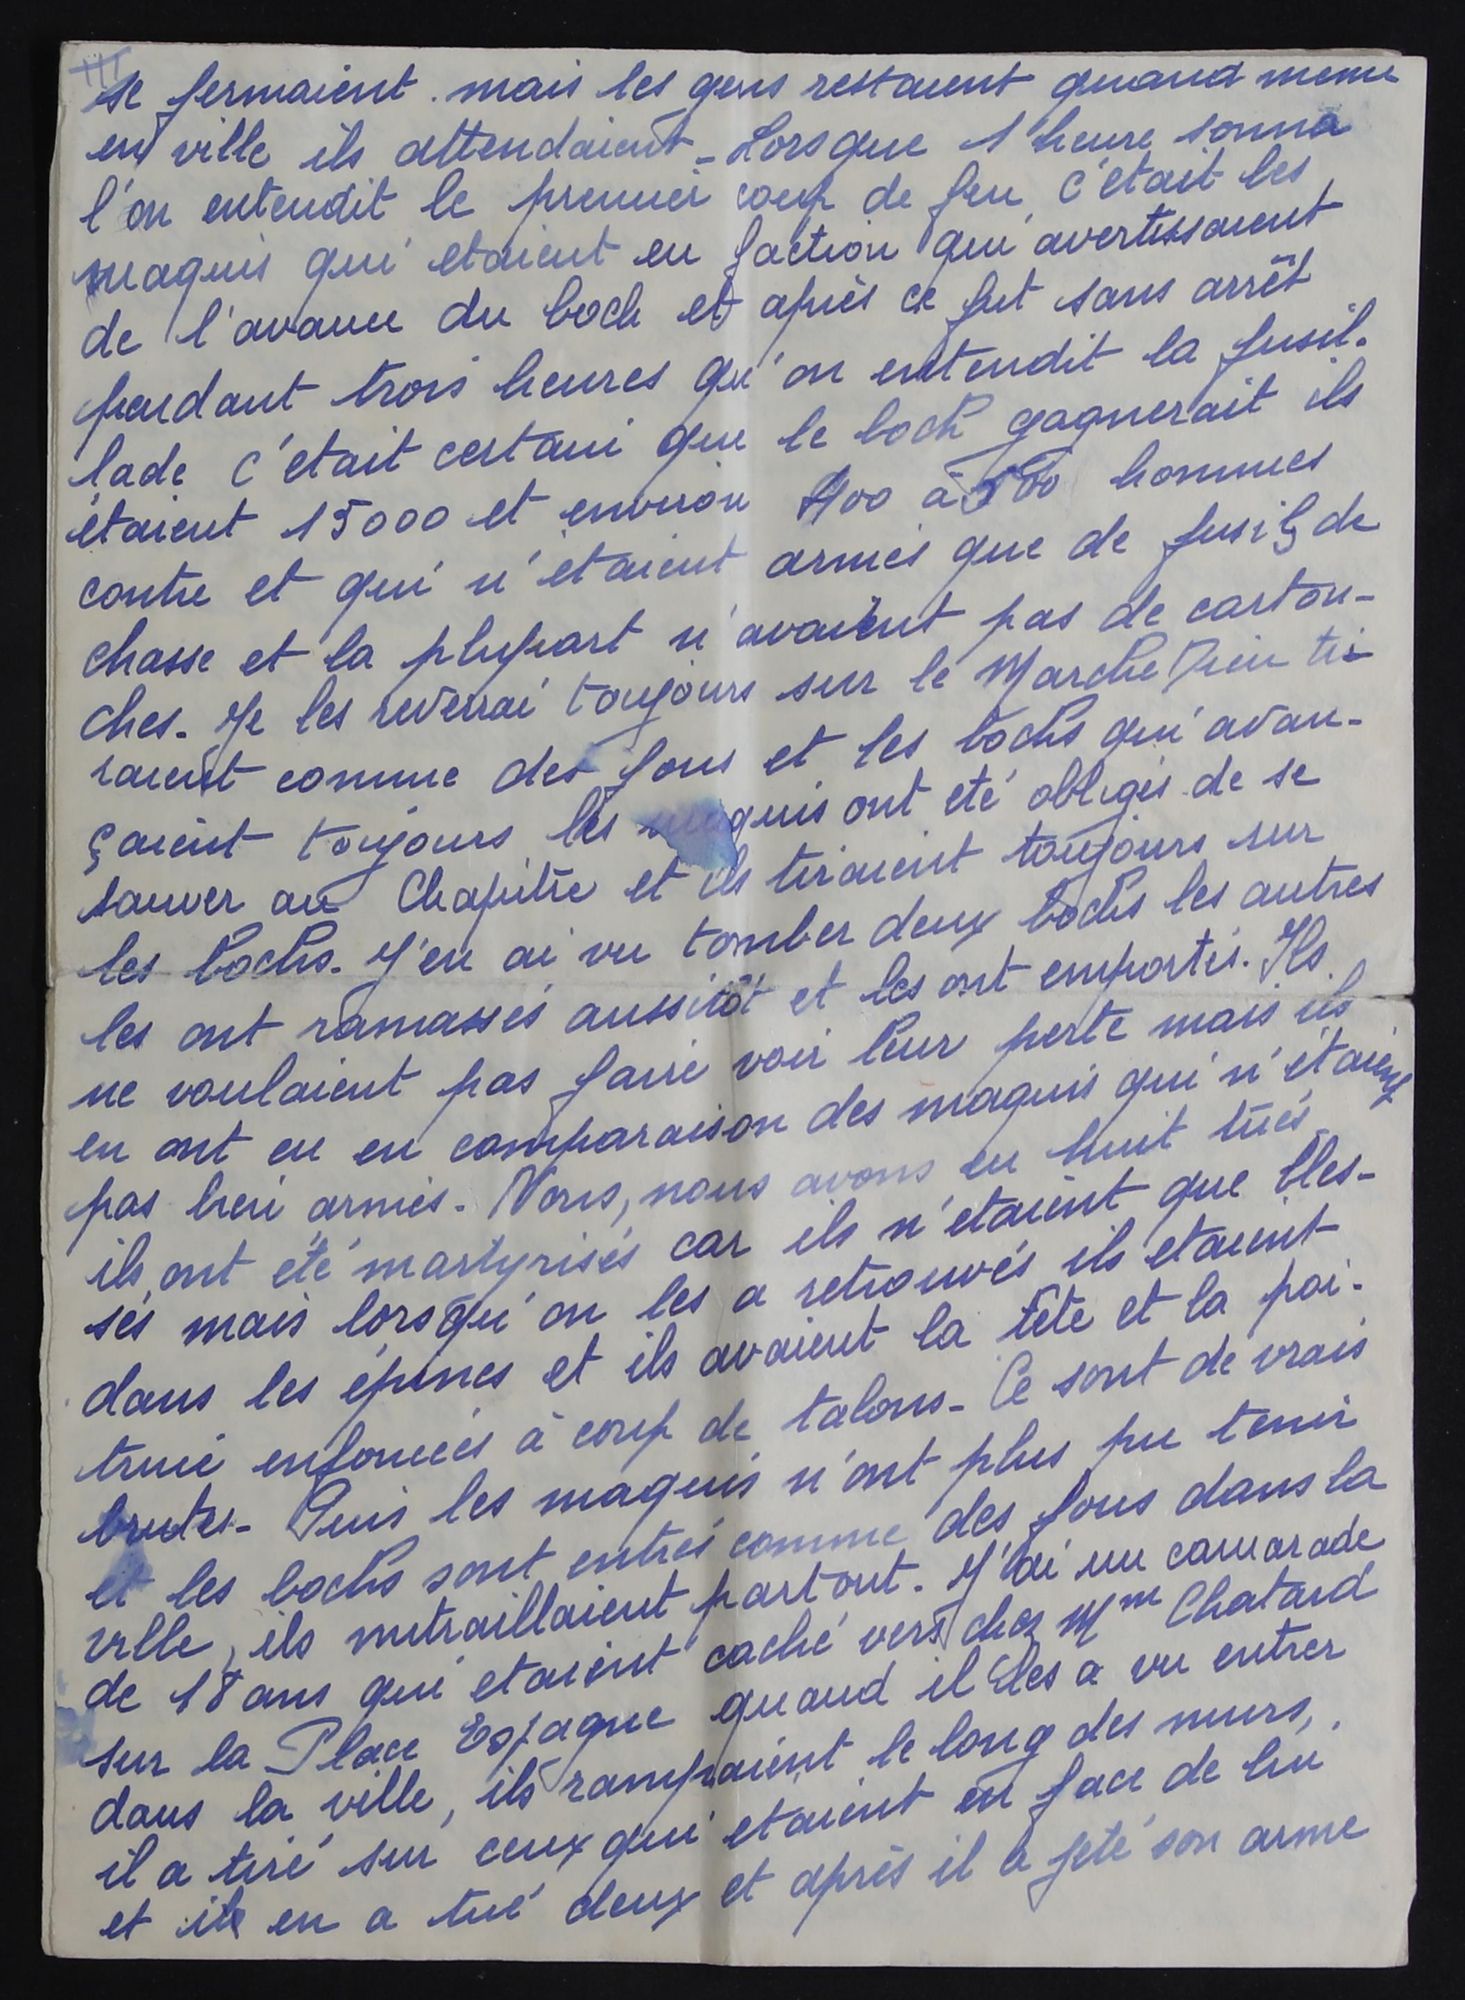 III
se fermaient. mais les gens restaient quand meme
en ville ils attendaient - Lorsque 1 heure sonna
l'on entendit le premier coup de feu, c'était les
maquis qui etaient en faction qui avertissaient
de l'avance du boch et après ce fut sans arrêt
pendant trois heures qu'on entendit la fusil-
lade c'était certain que le boch gagnerait ils
étaient 15000 et environ 400 à 500 hommes
contre et qui n'étaient armés que de fusils de
chasse et la plupart n'avaient pas de cartou-
ches. Je les reverrai toujours sur le Marche Dieu ti-
raient comme des fous et les bochs qui avan-
çaient toujours les maquis ont eté obligés de se
sauver au Chapitre et ils tiraient toujours sur
les bochs. J'en ai vu tomber deux bochs les autres
les ont ramassés aussitôt et les ont emportés. Ils
ne voulaient pas faire voir leur perte mais ils
en ont eu en comparaison des maquis qui n'étaient
pas bien armés. Nous, nous avons eu huit tués
ils ont été martyrisés car ils n'etaient que bles-
sés mais lorsqu'on les a retrouvés ils etaient
dans les épines et ils avaient la tête et la poi-
trine enfoncées à coup de talons - Ce sont de vrais
brutes - Puis les maquis n'ont plus pu tenir
et les bochs sont entrés comme des fous dans la
ville, ils mitraillaient partout. J'ai un camarade
de 18 ans qui etaient caché vers chez Mme Chatard
sur la Place Espagne quand il les a vu entrer
dans la ville, ils rampaient le long des murs,
il a tiré sur ceux qui etaient en face de lui
et il en a tué deux et après il a jeté son arme